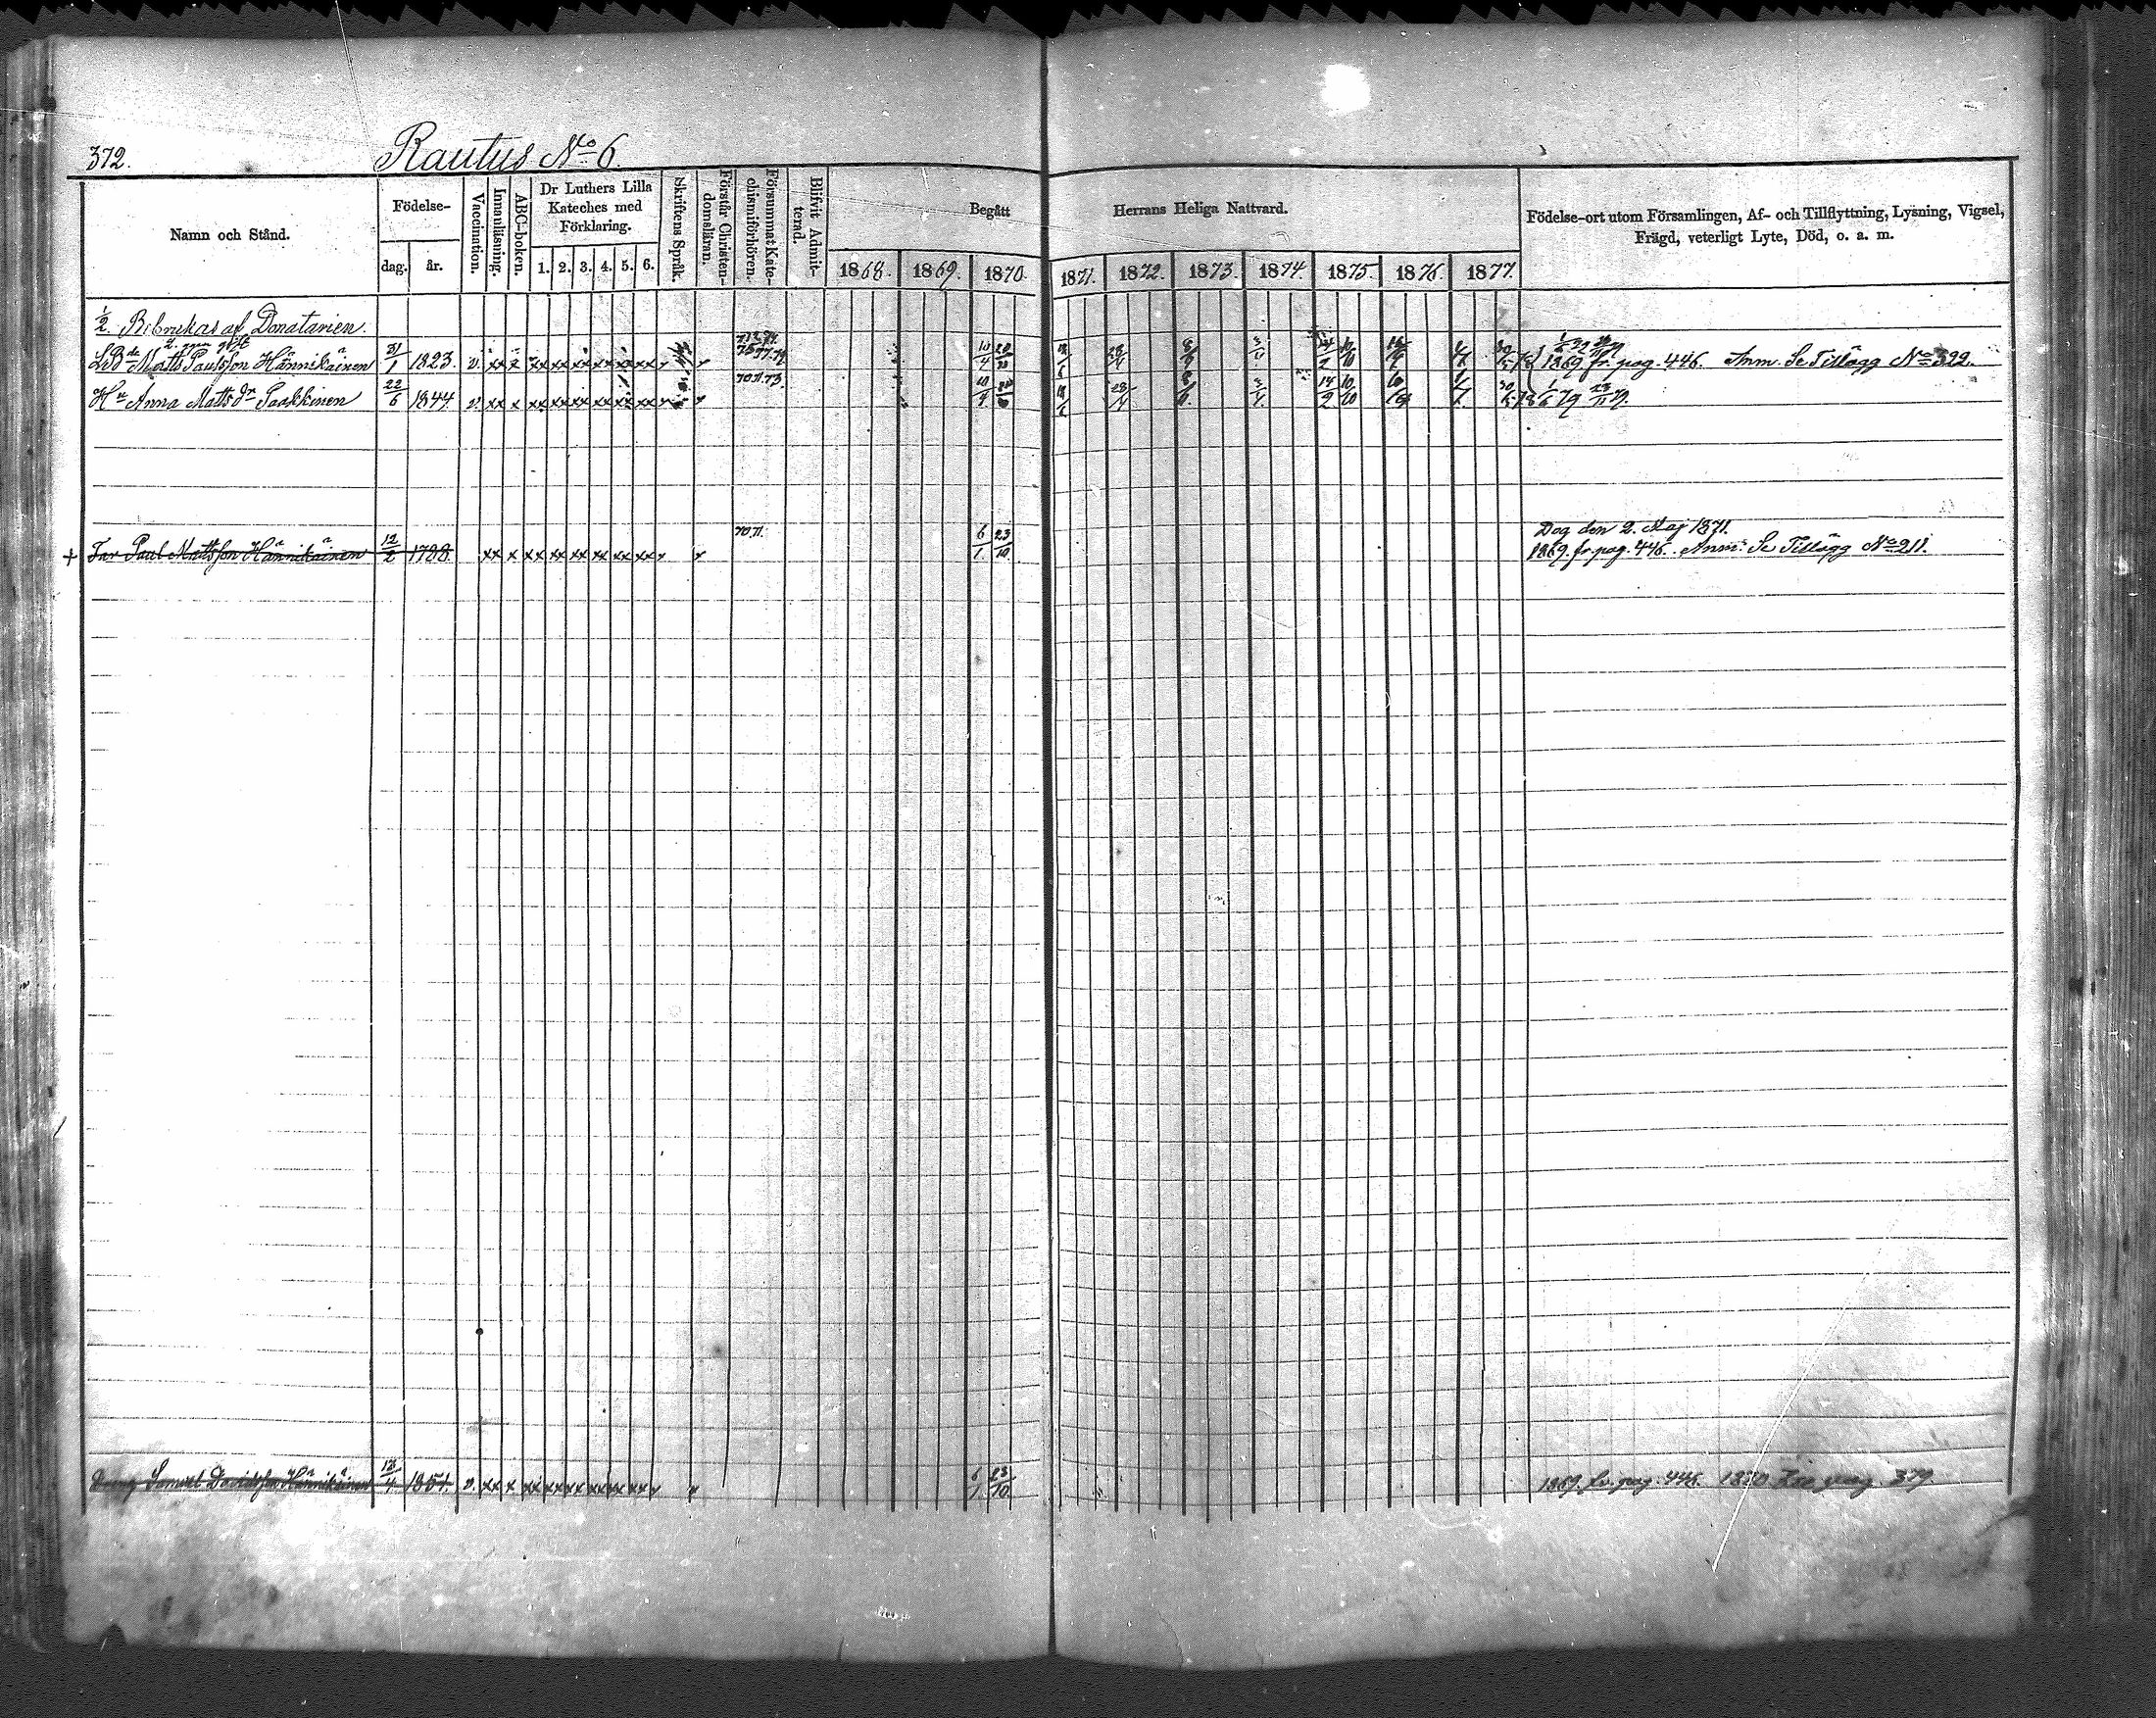 372.
Rautus No 6.
Namn och Stånd.
Födelse-
dag. år.
Vaccination.
Innanläsning.
ABC-boken.
Dr Luthers Lilla Kateches med Förklaring.
1. 2. 3. 4. 5. 6.
Skriftens Språk.
Förstår Christendomsläran.
Försummat Katechismiförhören.
Blifvit Admitterad.
Begått Herrans Heliga Nattvard.
1868. 1869. 1870. 1871. 1872. 1873. 1874. 1875. 1876. 1877.
Födelse-ort utom Församlingen, Af- och Tillflyttning, Lysning, Vigsel,
Frägd, veterligt Lyte, Död, o. a. m.
1/2. Bebrukas af Donatarien.
2. ggn gift
LBde Matts Paulsson Hännikäinen 31/1 1823. v. xx x xx xx xx xx xx xx 1869. fr. pag. 446. Anm. Se Tillägg No 322.
70.71.73.
Hu Anna Matts dr Paakkinen 22/6 1844 v. xx x xx xx xx xx xx xx
70.71. 6/1 23/10 Dog den 2. Maj 1871.
+ Far Paul Mattsson Hännikäinen 12/2 1788 xx x xx xx xx xx xx xx 1869. fr. pag. 446. Anm. Se Tillägg No 211.
Dräng Samuel Davidsson Hännikäinen 12/4 1851. v. xx x xx xx xx xx xx xx 6/1 23/10 1869. fr. pag. 446. 1870 pag. 379